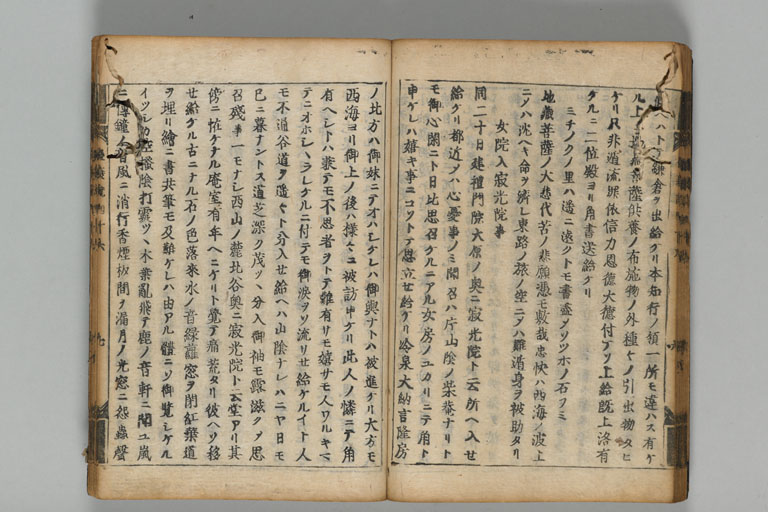 ハトテ鎌倉ヲ出給ケリ本知行ノ領一所モ違ハス有ケ
ル上 供養ノ布施物ノ外種々ノ引出物タヒ
ケリ只非遁流罪依信力恩徳大徳付テソ上給既上洛有
ケルニ二位殿ヨリ角書送給ケリ
ミチノクノ里ハ遥ニ遠クトモ書盡メソツホノ石フミ
地蔵菩薩ノ大悲代苦ノ悲願憑モ敷哉忠快ハ西海ノ波上
ニソハ沈ヘキ命ヲ濟レ東路ノ旅ノ空ニソハ難遁身ヲ被助タリ
女院入寂光院事
同二十日建禮門院大原ノ奥ニ寂光院ト云所ヘ入セ
給ケリ都近ソハ心憂事ノミ聞召ハ片山陰ノ柴菴ナリト
モ御心閑ニト日比思召ケルニアル女房ノユカリニテ角ト
申ケレハ嬉キ事ニコソトテ思立セ給ケリ冷泉大納言隆房
ノ北方ハ御妹ニテオハシケレハ御輿ナトハ被進ケリ大方モ
西海ヨリ御上ノ後ハ様々ニ被訪申ケリ此人ノ憐ニテ角
有ヘシトハ兼テモ不思者ヲトテ難有サモ嬉サモ人ワルキマ
テニオホシヽラレケルニ付テモ御涙ヲソ流サセ給ケルイト人
モ不通谷道ヲ遥々ト分入セ給ヘハ山陰ナレハニヤ日モ
已ニ暮ナントス道芝深ク茂ツヽ分入御袖モ露滋クソ思
召残事一モナシ西山ノ麓北谷奥ニ寂光院ト云堂アリ其
傍ニ恠ケナル庵室有年ヘニケリト覚テ痛荒タリ彼ヘソ移
セ給ケル古ニナル石ノ色落来水ノ音緑蘿窓ヲ閉紅葉道
ヲ埋リ繪ニ書共筆モ及難ケレハ由アル體ニソ御覧シケル
イツシカ空掻陰打霎ツヽ木葉亂飛テ鹿ノ音軒ニ聞ユ嵐
ニ傳鐘ノ音風ニ消行香煙板間ヲ漏月ノ光窓ニ怨蟲聲